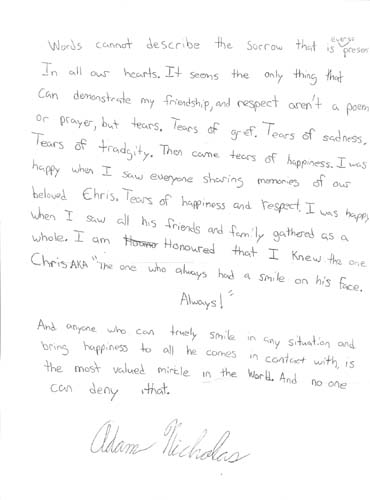 Words cannot describe the sorrow that is ever so present
In all our hearts. It seems the only thing that
Can demonstrate my friendship, and respect aren't a poem
or prayer, but tears. Tears of grief. Tears of sadness.
Tears of tradgity. Then came tears of happiness. I was
happy when I saw everyone sharing memories of our
beloved Chris. Tears of happiness and respect. I was happy
when I saw all his friends and family gathered as a
whole. I am Honoured that I Knew the one
Chris AKA "The one who always had a smile on his face.
Always!"
And anyone who can truely smile in any situation and
bring happiness to all he comes in contact with, is
the most valued mircle in the World. And no one
can deny that.
Adam Nicholas